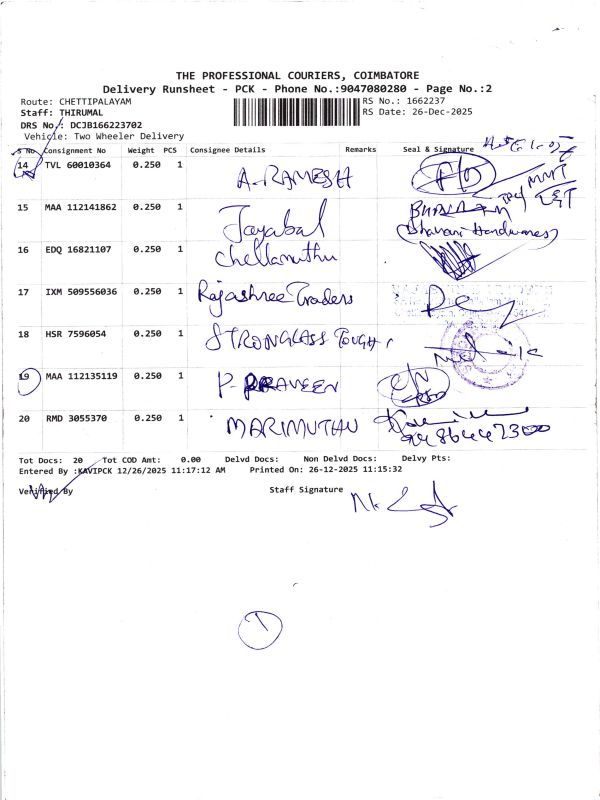 THE PROFESSIONAL COURIERS, COIMBATORE
Delivery Runsheet - PCK - Phone No.:9047080280 - Page No.:2
Route: CHETTIPALAYAM RS No.: 1662237
Staff: THIRUMAL RS Date: 26-Dec-2025
DRS No.: DCJB166223702
Vehicle: Two Wheeler Delivery
S No Consignment No Weight PCS Consignee Details Remarks Seal & Signature
14 TVL 60010364 0.250 1 A. RAMESH
15 MAA 112141862 0.250 1 Jayabal
(Bhavani Hardwares)
16 EDQ 16821107 0.250 1 Chellamuthu
17 IXM 509556036 0.250 1 Rajashree Traders
18 HSR 7596054 0.250 1 STRONGLASS TOUGH
19 MAA 112135119 0.250 1 P. PRAVEEN
20 RMD 3055370 0.250 1 MARIMUTHU
Tot Docs: 20 Tot COD Amt: 0.00 Delvd Docs: Non Delvd Docs: Delvy Pts:
Entered By :KAVIPCK 12/26/2025 11:17:12 AM Printed On: 26-12-2025 11:15:32
Verified By Staff Signature
1